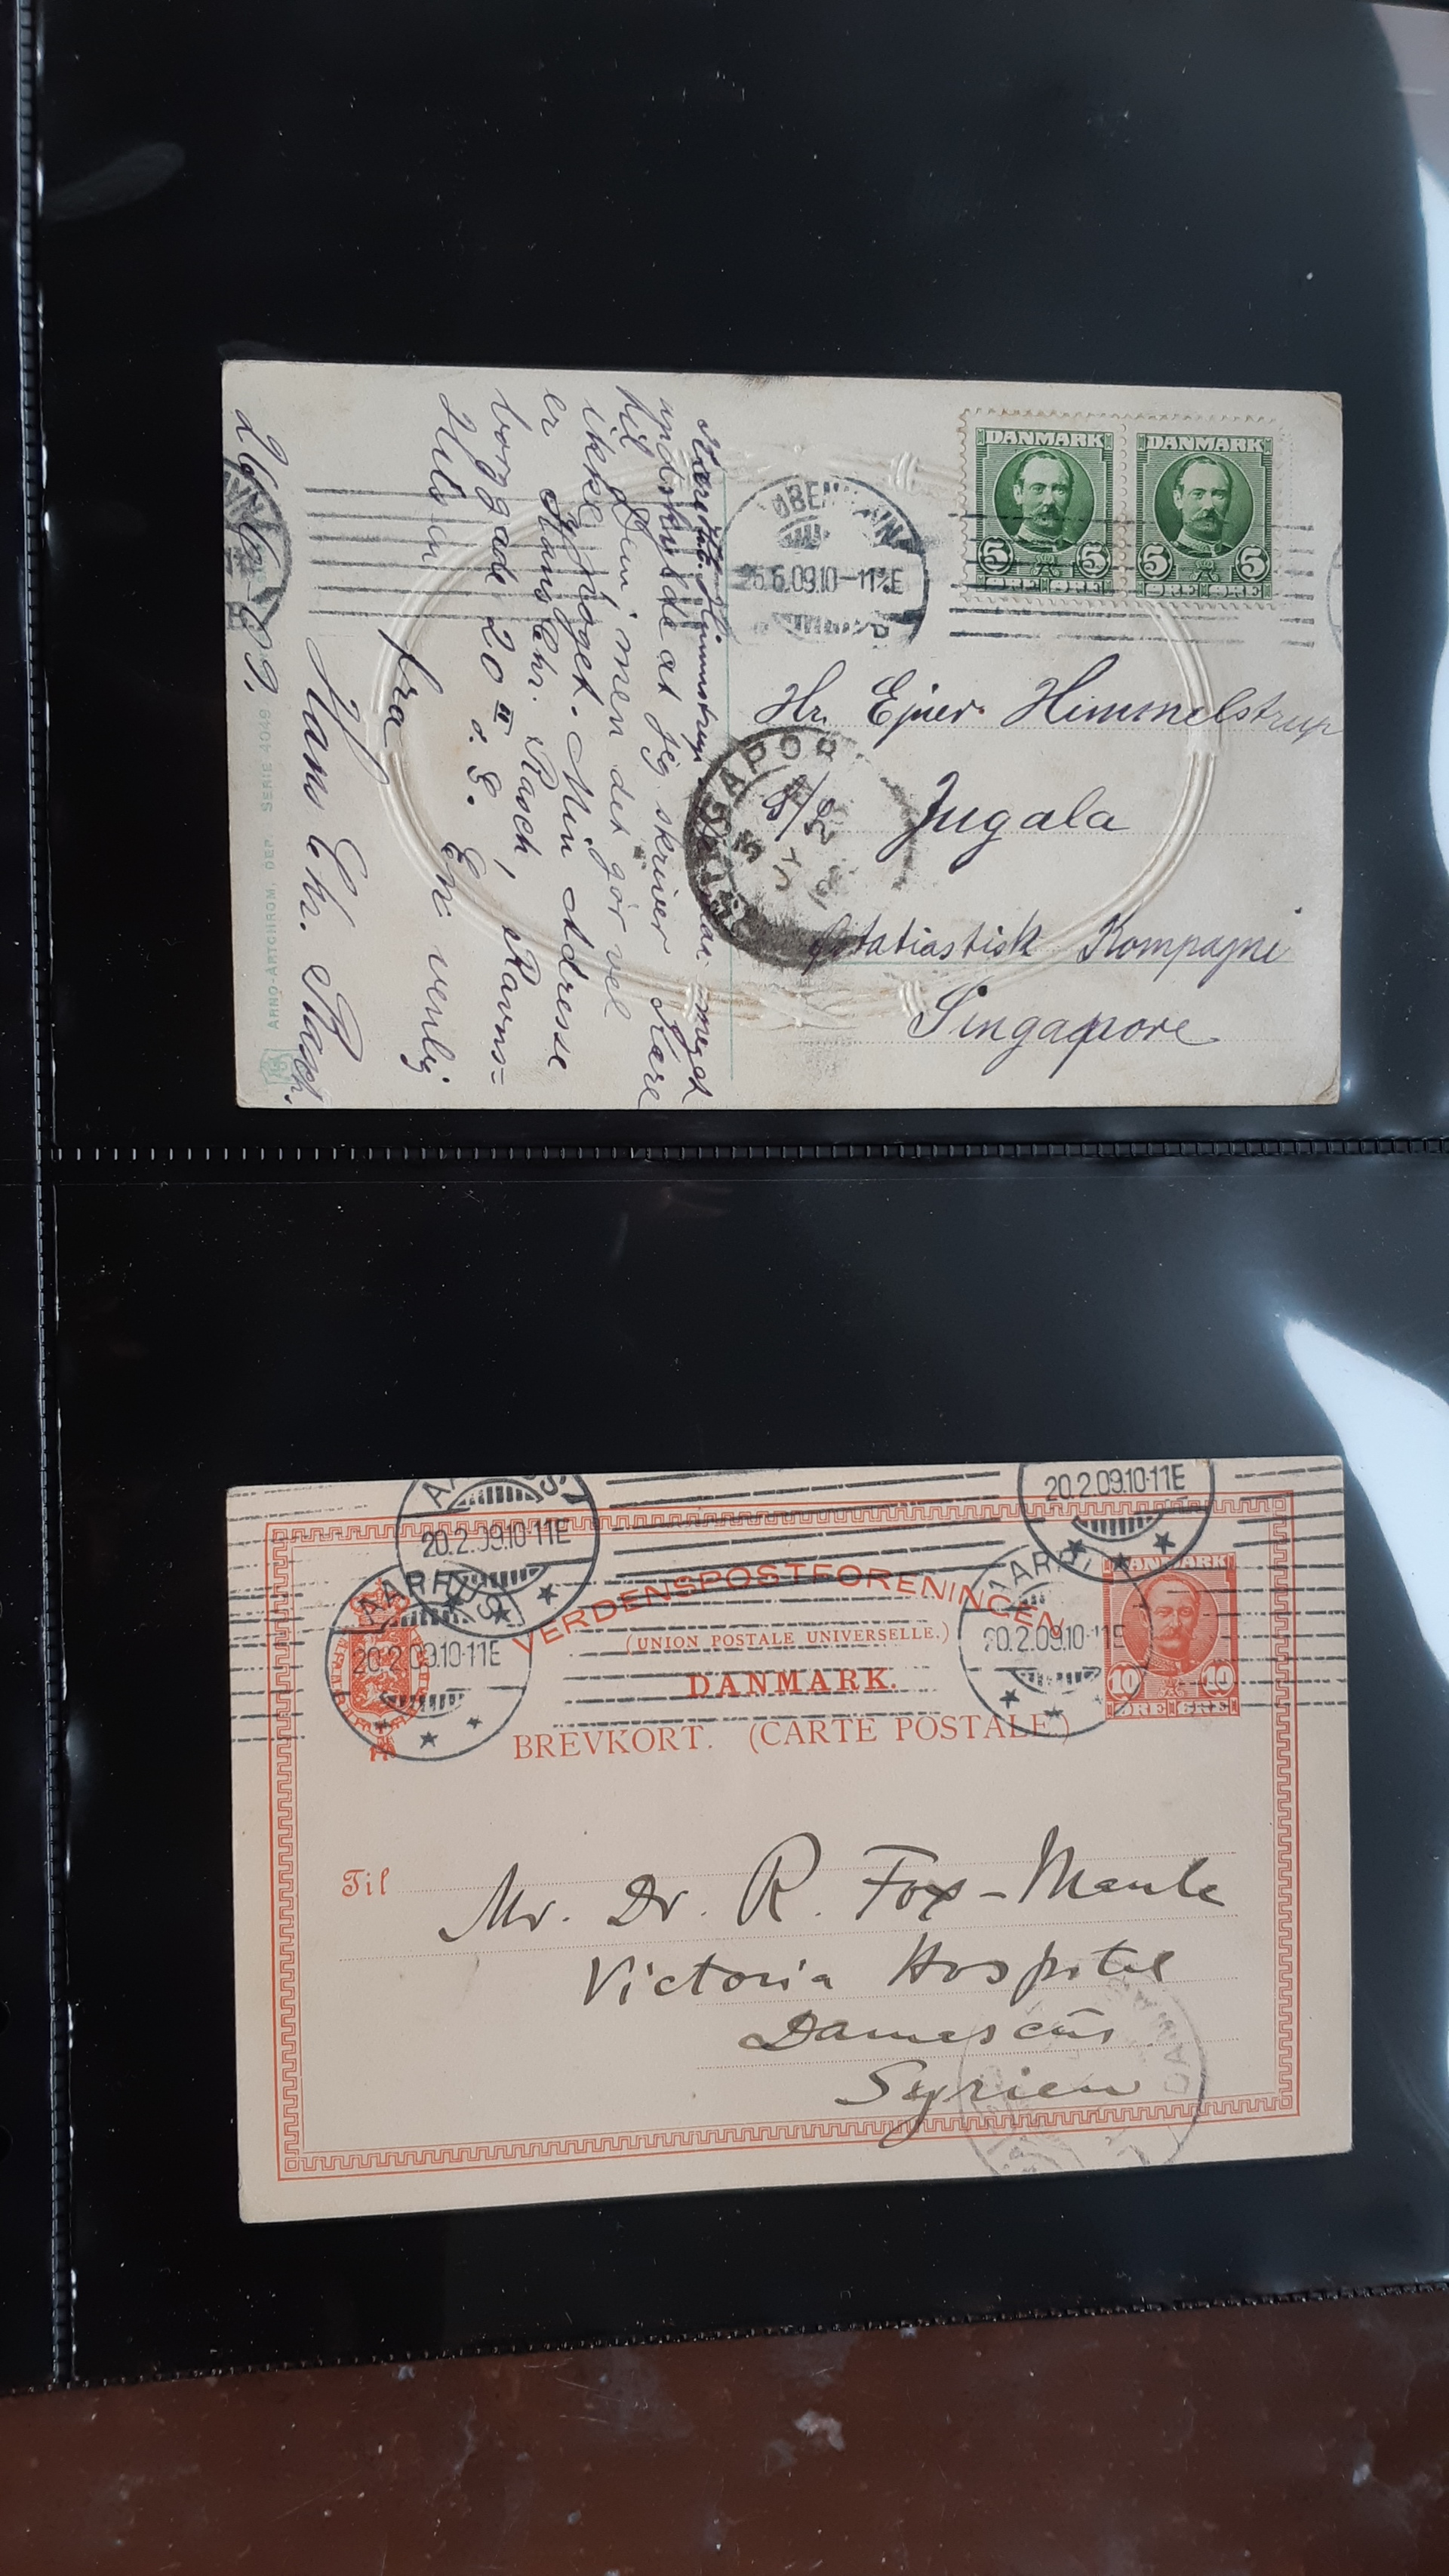 DANMARK DANMARK
5 5 5 5
ØRE ØRE ØRE ØRE
KØBENHAVN
26.6.09.10-11½E
Hr. Ejner Himmelstrup
S/S Jugala
Østasiatisk Kompagni
Singapore
SINGAPOR
meget
undskylde at jeg skriver Kære
til Dem, men det gør vel
ikke noget. Min Adresse
er Hans Chr. Rasch, Ravns=
borggade 20 II
En venlig
Hilsen
fra
Hans Chr. Rasch.
26/6-09.
ARNO-ARTCHROM. DEP. SERIE 4049
20.2.09.10-11E
20.2.09.10-11E
AARHUS
20.2.09.10-11E
AARHUS
20.2.09.10-11E
VERDENSPOSTFORENINGEN
(UNION POSTALE UNIVERSELLE.)
DANMARK.
BREVKORT. (CARTE POSTALE.)
DANMARK
10 10
ØRE ØRE
Til
Mr. Dr. R. Fox-Maule
Victoria Hospital
Damascus
Syrien
DAMAS